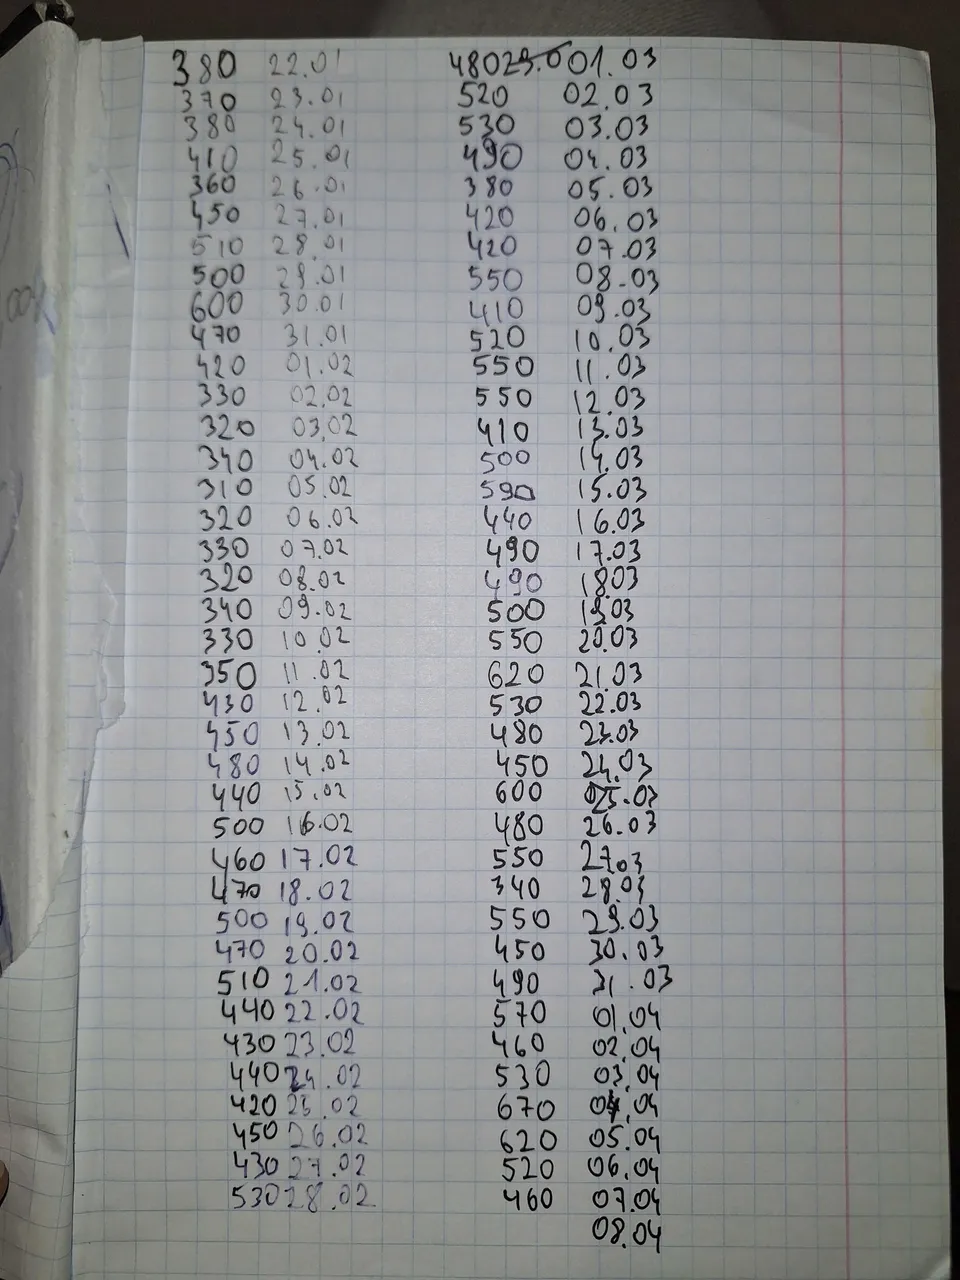 380 22.01
370 23.01
380 24.01
410 25.01
360 26.01
450 27.01
510 28.01
500 29.01
600 30.01
470 31.01
420 01.02
330 02.02
320 03.02
340 04.02
310 05.02
320 06.02
330 07.02
320 08.02
340 09.02
330 10.02
350 11.02
430 12.02
450 13.02
480 14.02
440 15.02
500 16.02
460 17.02
470 18.02
500 19.02
470 20.02
510 21.02
440 22.02
430 23.02
440 24.02
420 25.02
450 26.02
430 27.02
530 28.02
480 29.0 01.03
520 02.03
530 03.03
490 04.03
380 05.03
420 06.03
420 07.03
550 08.03
410 09.03
520 10.03
550 11.03
550 12.03
410 13.03
500 14.03
590 15.03
440 16.03
490 17.03
490 18.03
500 19.03
550 20.03
620 21.03
530 22.03
480 23.03
450 24.03
600 25.03
480 26.03
550 27.03
340 28.03
550 29.03
450 30.03
490 31.03
570 01.04
460 02.04
530 03.04
670 04.04
620 05.04
520 06.04
460 07.04
08.04